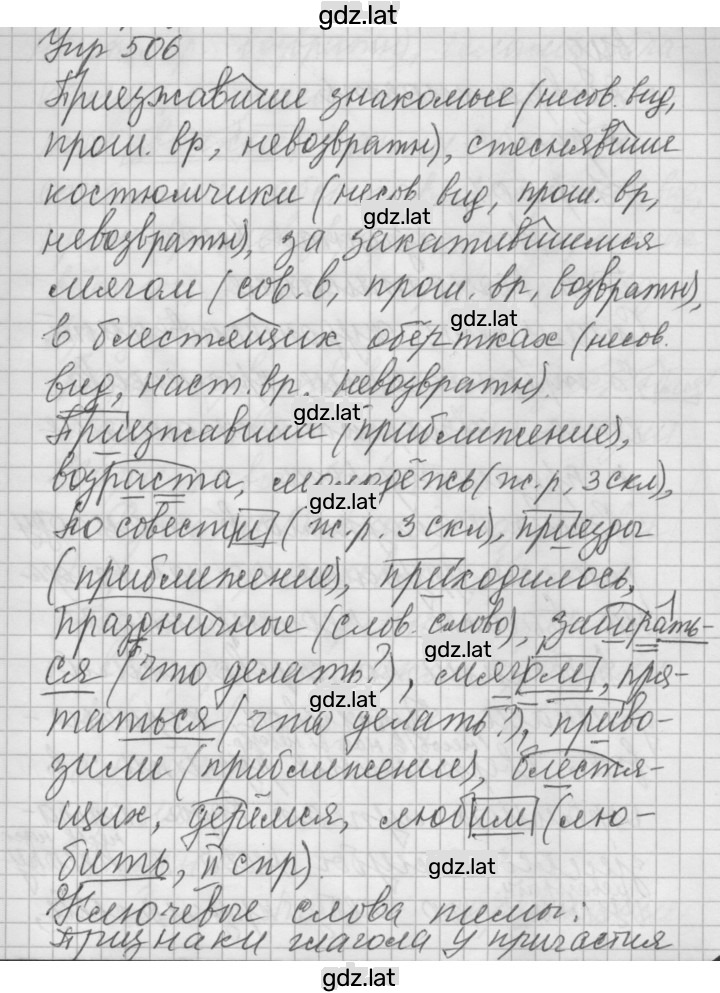 gdz.lat
Упр 506
Приезжавшие знакомые (несов. вид,
прош. вр, невозвратн), стеснявшие
костюмчики (несов. вид, прош. вр,
gdz.lat
невозвратн), за закатившимся
мячом (сов. в, прош. вр, возвратн),
gdz.lat
в блестящих обёртках (несов.
вид, наст. вр. невозвратн).
gdz.lat
Приезжавших (приближение),
возраста, молодёжь (ж.р, 3 скл),
gdz.lat
по совести (ж.р. 3 скл), приезды
(приближение), приходилось,
праздничные (слов. слово), забирать-
gdz.lat
ся (что делать?), мячом, пря-
gdz.lat
таться (что делать?), приво-
зили (приближение), блестя-
щих, дерёмся, любим (лю-
бить, II спр).
gdz.lat
Ключевые слова темы:
Признаки глагола у причастия
gdz.lat